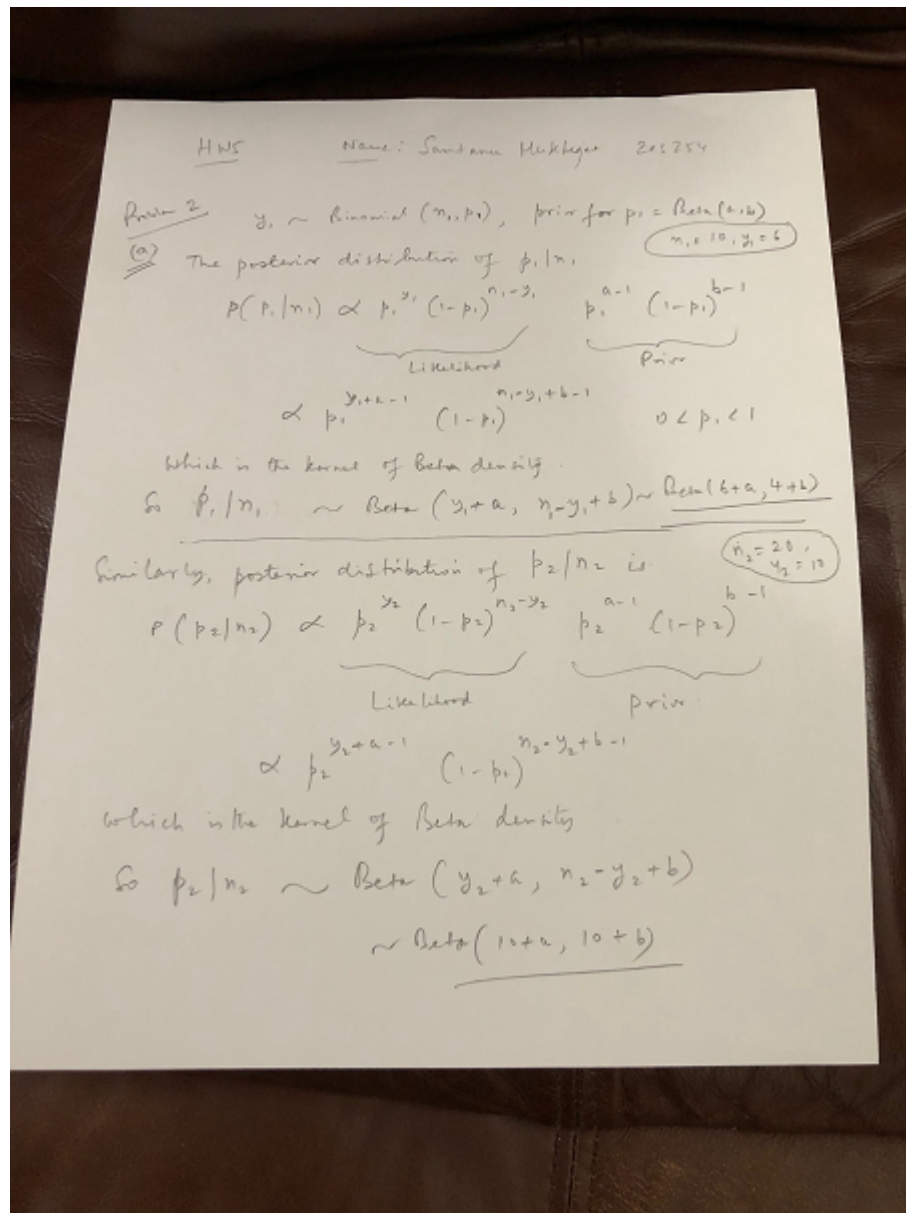 HW5 Name: Santanu Mukherjee 205254
Problem 2
y₁ ~ Binomial (n₁, p₁), prior for p₁ = Beta(a,b)
n₁ = 10, y₁ = 6
(a) The posterior distribution of p₁|n₁
P(p₁|n₁) ∝ p₁^{y₁} (1-p₁)^{n₁-y₁} p₁^{a-1} (1-p₁)^{b-1}
Likelihood Prior
∝ p₁^{y₁+a-1} (1-p₁)^{n₁-y₁+b-1} 0 < p₁ < 1
Which is the kernel of Beta density.
So p₁|n₁ ~ Beta (y₁+a, n₁-y₁+b) ~ Beta(6+a, 4+b)
n₂ = 20, y₂ = 10
Similarly, posterior distribution of p₂|n₂ is
P(p₂|n₂) ∝ p₂^{y₂} (1-p₂)^{n₂-y₂} p₂^{a-1} (1-p₂)^{b-1}
Likelihood prior
∝ p₂^{y₂+a-1} (1-p₂)^{n₂-y₂+b-1}
which is the kernel of Beta density
So p₂|n₂ ~ Beta (y₂+a, n₂-y₂+b)
~ Beta(10+a, 10+b)